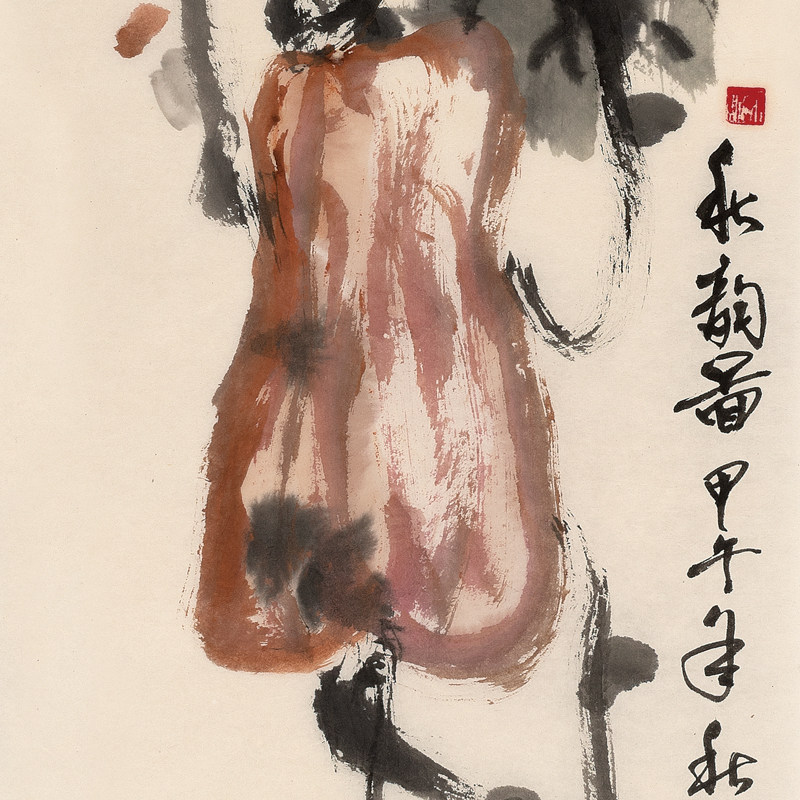 秋韵图甲午年秋